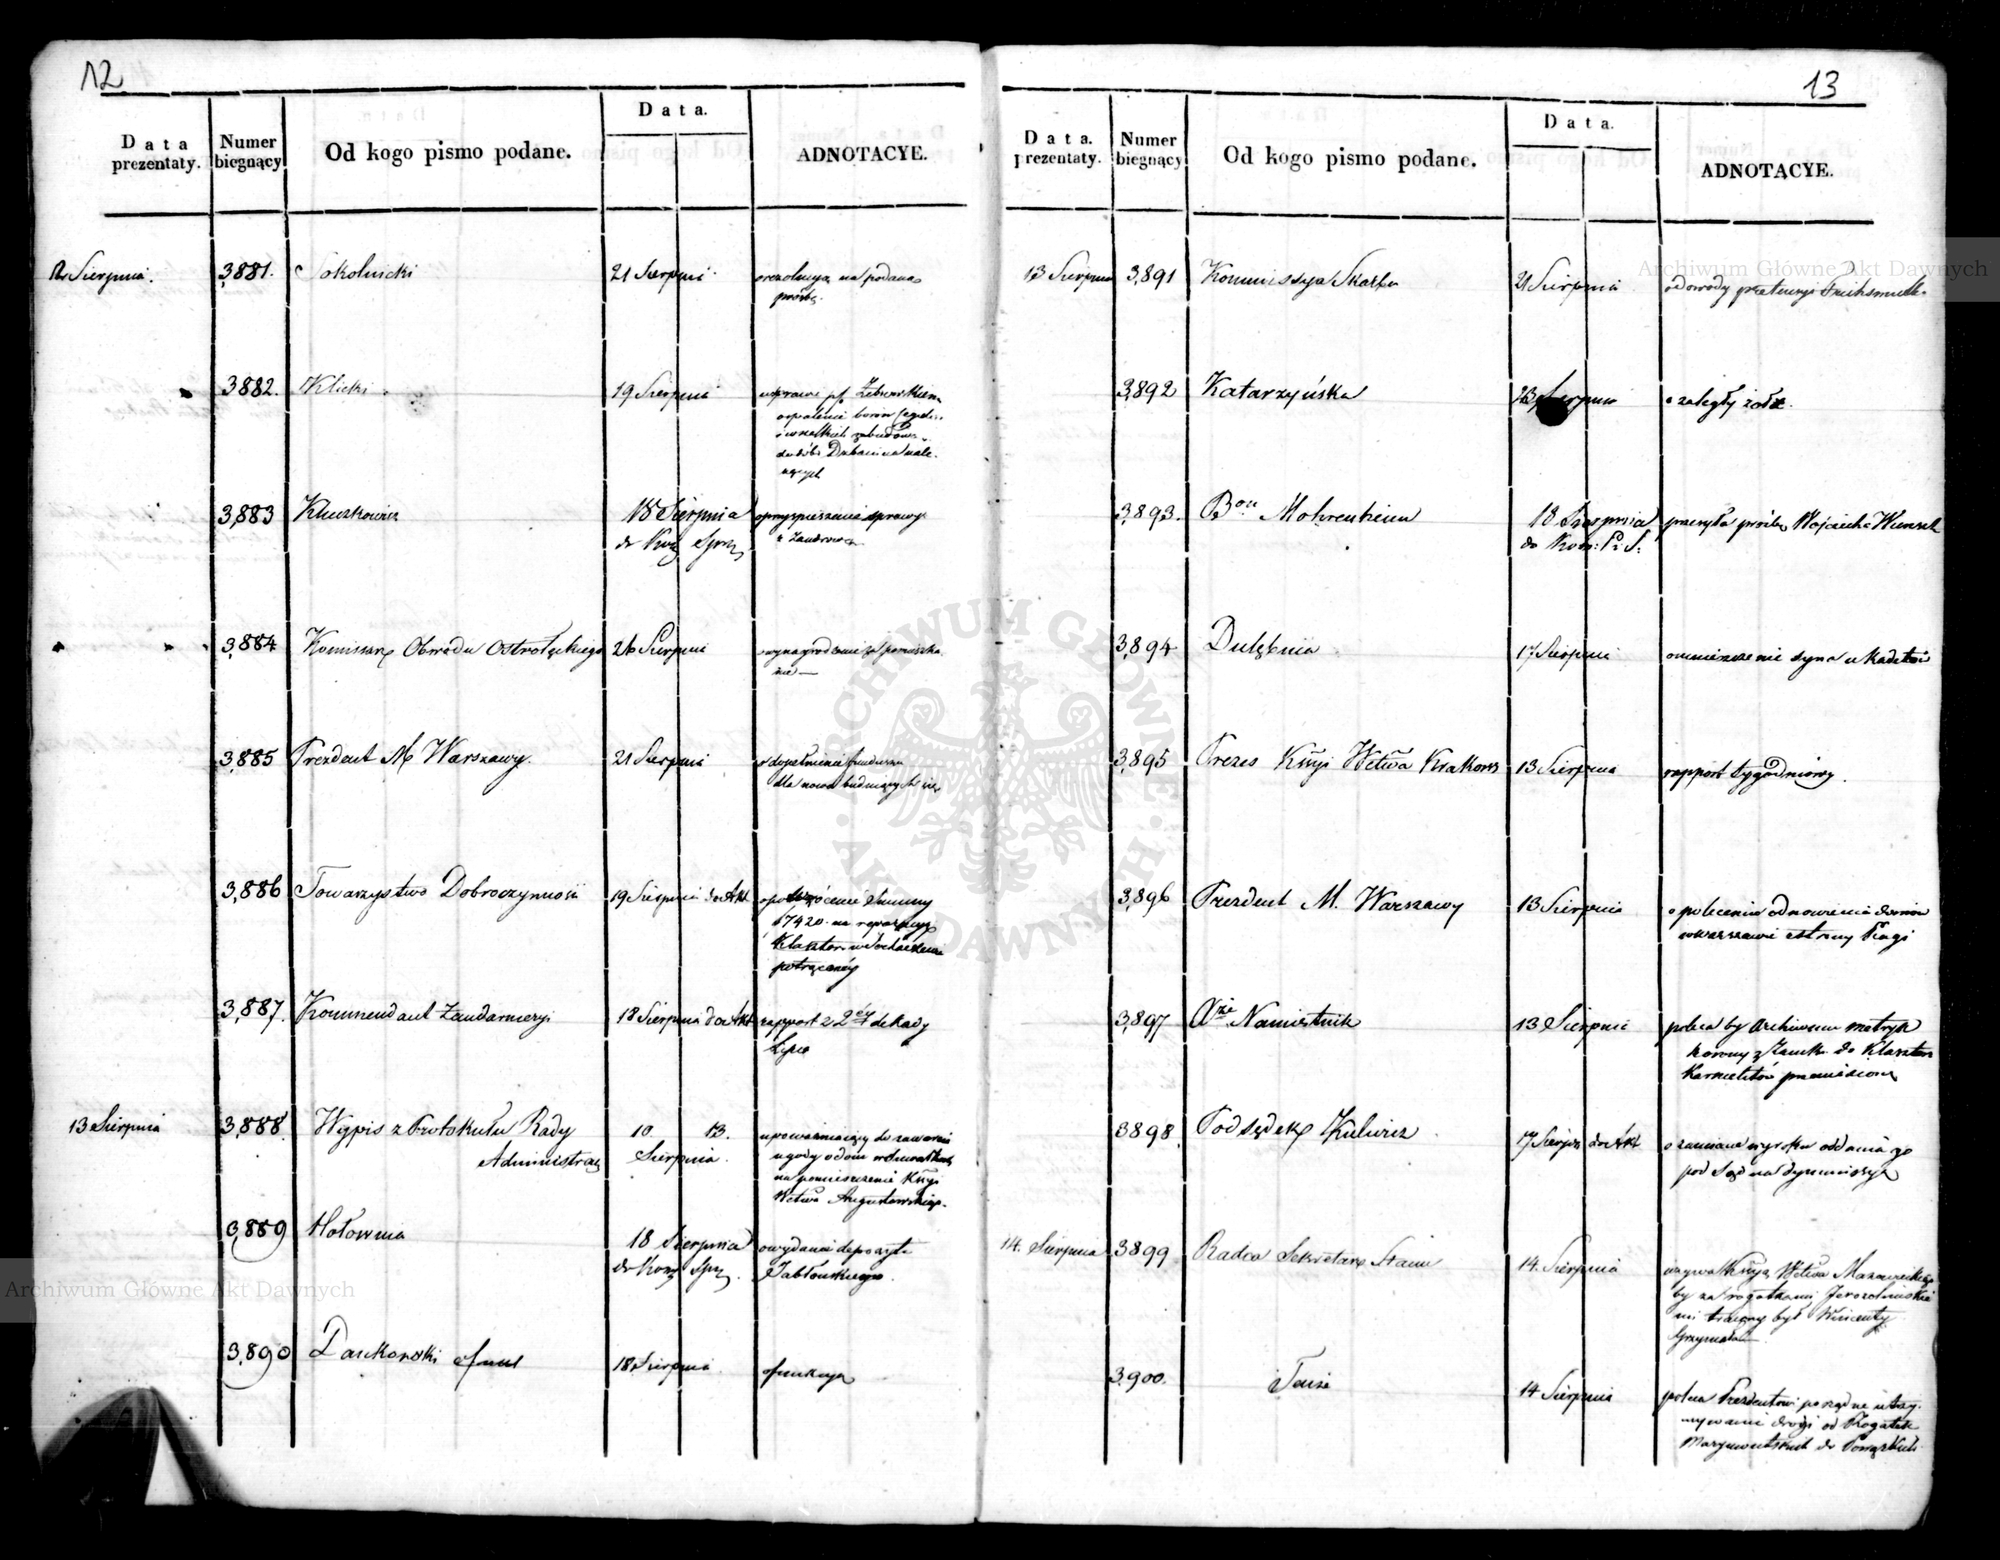 12
Data prezentaty.
Numer biegnący
Od kogo pismo podane.
Data.
ADNOTACYE.
12 Sierpnia.
3,881.
Sokolnicki
21 Sierpnia
o rezolucyą na podaną
prośbę.
3,882.
Klicki
19 Sierpnia
3,883
Kluczkowicz
18 Sierpnia
do Kom Spraw
o przyspieszenie sprawy
3,884
Komissarz Obwodu Ostrołęckiego
26 Sierpnia
3,885
Prezdent M Warszawy.
21 Sierpnia
o dopełnienie funduszu
dla nowo budujących się
3,886
Towarzystwo Dobroczynności
19 Sierpnia do Akt
o powrócenie Summy
17420 na reparacyą
potrąconéy
3,887.
Kommendant Żandarmeryi
18 Sierpnia do Akt
rapport z 2éy dekady
Lipca
13 Sierpnia
3,888
Wypis z Protokułu Rady
Administrac
10 13.
Sierpnia.
upoważniający do zawarcia
ugody o dom w Suwałkach
na pomieszczenie Kmsyi
Wctwa Augustowskiego.
3,889
Hołownia
18 Sierpnia
o wydanie depozytu
Jabłońskiego.
3,890
18 Sierpnia
o funkcyą
13
Data. prezentaty.
Numer biegnący
Od kogo pismo podane.
Data.
ADNOTACYE.
13 Sierpnia
3,891
Kommissya Skarbu
21 Sierpnia
o dowody pretensyi
3,892
Katarzyńska
23 Sierpnia
o zaległy żołd.
3,893.
Bon Mohrenheim
18 Sierpnia
do Kom: P: S:
przesyła prośbę Wojciecha
3,894
Dulębina
17 Sierpnia
o umieszczenie syna u Kadetów
3,895
Prezes Kmsyi Wctwa Krakows
13 Sierpnia
rapport tygodniowy.
3,896
Prezdent M. Warszawy
13 Sierpnia
o polecenie odnowienia domów
w Warszawie od strony Pragi
3,897
Xże Namiestnik
13 Sierpnia
poleca by Archiwum metryk
korony z Zamku do Klasztoru
Karmelitów przeniesiono
3898.
Podsędek Kulwicz
17 Sierpn do Akt
o zamianę wyroku oddania go
pod Sąd na dymissyą
14. Sierpnia
3899
Radca Sekretarz Stanu
14. Sierpnia
wzywa Kmsyą Wctwa Mazowieckiego
by za rogatkami Jerozolimskie
mi tracony był Wincenty
Grzymała
3,900.
Tenże
14 Sierpnia
poleca Prezdentowi porządne utrzy
mywanie drogi od Rogatek
Marymontskich do Powązkich
Archiwum Główne Akt Dawnych
Archiwum Główne Akt Dawnych
ARCHIWUM GŁÓWNE
AKT DAWNYCH